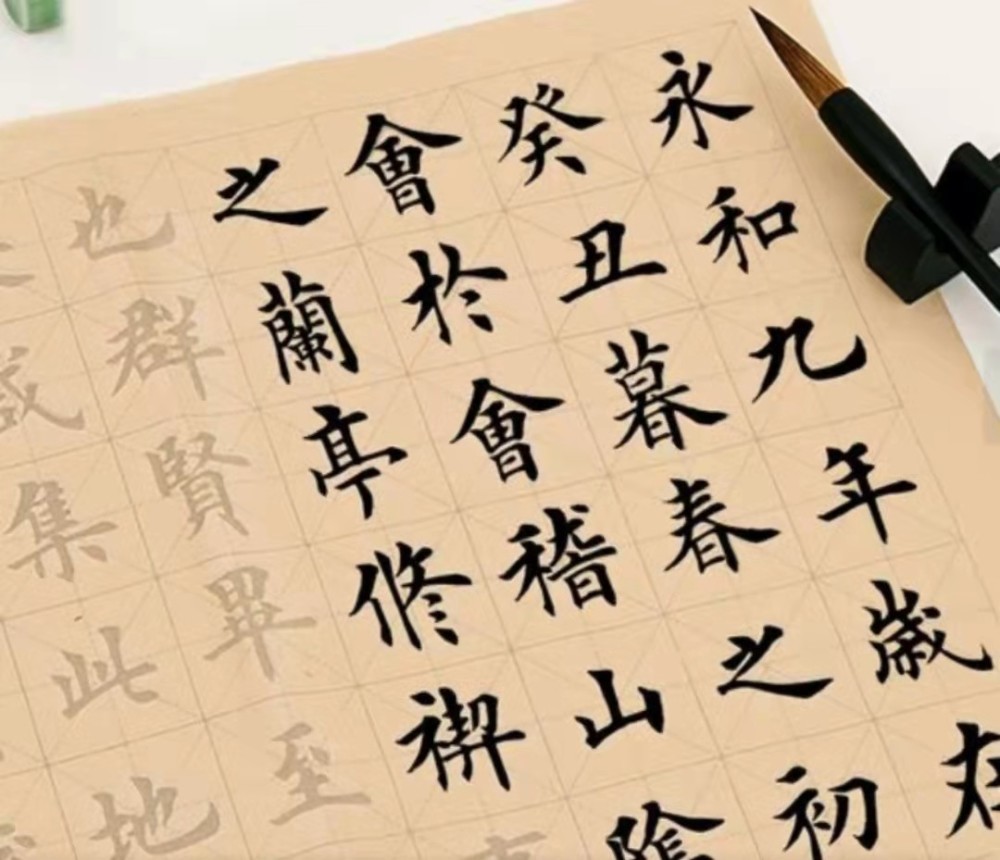 永和九年歲在
癸丑暮春之初
會於會稽山陰
之蘭亭修禊
也群賢畢至
咸集此地